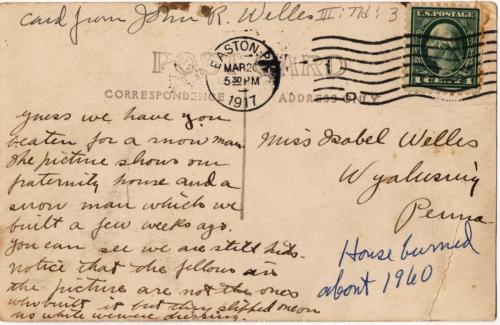 card from John R. Welles III: Md: 3
U.S. POSTAGE
EASTON, PA.
MAR 20
5 30 PM
1917
POST CARD
CORRESPONDENCE
ADDRESS ONLY
guess we have you
beaten for a snow man.
The picture shows our
fraternity house and a
snow man which we
built a few weeks ago.
you can see we are still kids.
notice that the fellows in
the picture are not the ones
who built it but they slipped one on
us while we were dressing.
Miss Isabel Welles
Wyalusing
Penna
House burned
about 1960